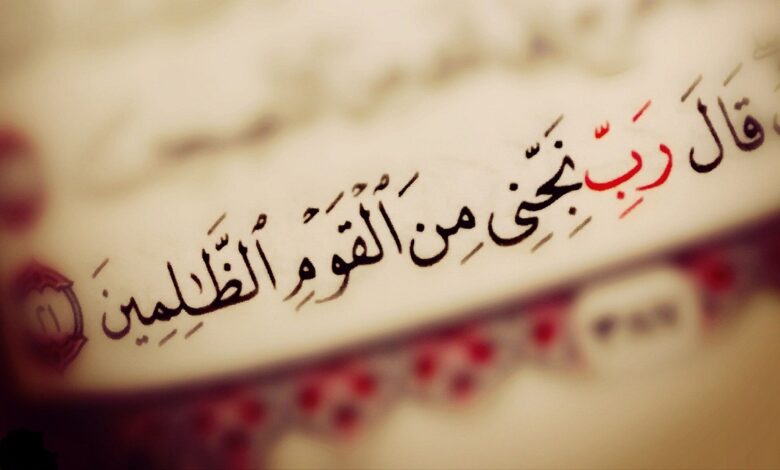 قَالَ رَبِّ نَجِّنِى مِنَ ٱلْقَوْمِ ٱلظَّـٰلِمِينَ ٢١